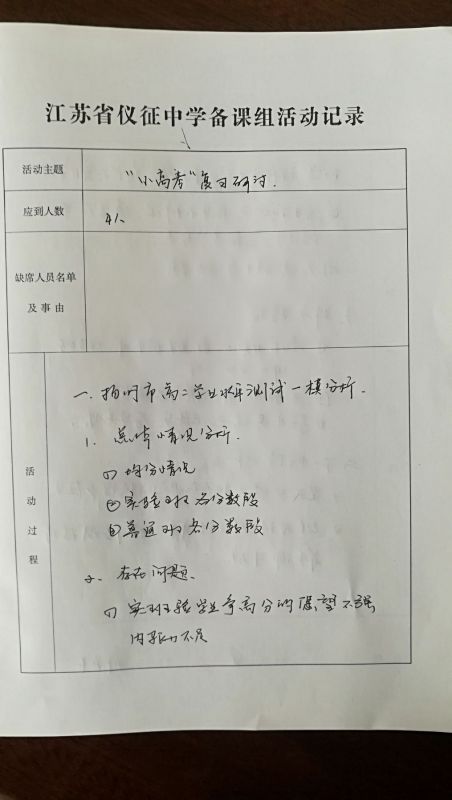 江苏省仪征中学备课组活动记录
活动主题
"小高考"复习研讨.
应到人数
4人
缺席人员名单
及事由
活动过程
一. 扬州市高二学业水平测试一模分析.
1. 总体情况分析.
① 均分情况
② 实验班 各分数段
③ 普通班 各分数段
2. 存在问题.
① 实班 学生争高分的愿望不强
内驱力不足